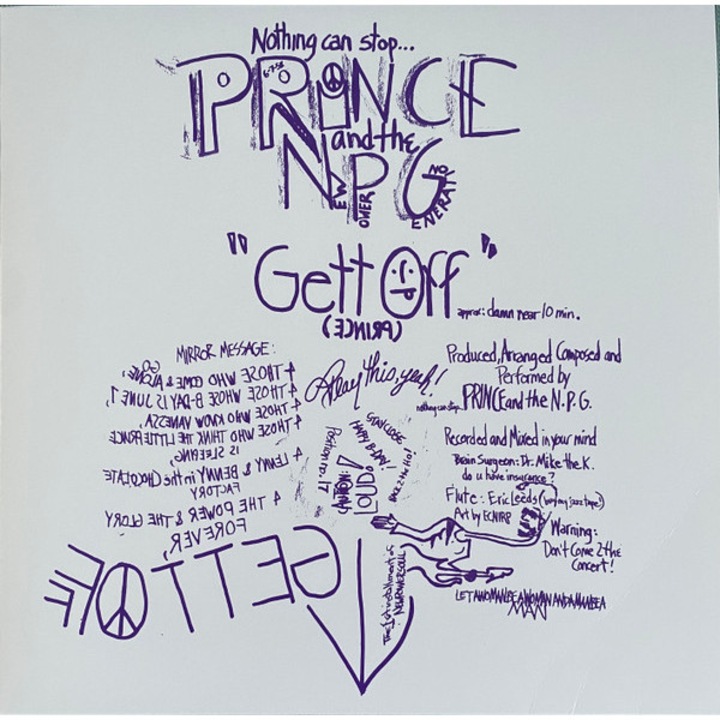 Nothing can stop...
PRINCE
6-7-58
and the
NPG
NEW POWER GENERATION
"Gett Off"
approx: damn near 10 min.
(PRINCE)
MIRROR MESSAGE:
4 THOSE WHO COME & GO ALONE,
4 THOSE WHOSE B-DAY IS JUNE 7
4 THOSE WHO KNOW VANESSA
4 THOSE WHO THINK THE LITTLE PRINCE
IS SLEEPING,
4 LENNY & BENNY in the CHOCOLATE
FACTORY
4 THE POWER & THE GLORY
FOREVER,
GETT OFF
Play this, yeah!
STAY CLOSE
HAPPY B-DAY!
Position no. 17
CAUTION:
LOUD!
BACK 2 the Ho!
Produced, Arranged Composed and
Performed by
nothing can stop... PRINCE and the N.P.G.
Recorded and Mixed in your mind
Brain Surgeon: Dr. Mike the K.
do u have insurance?
Flute: Eric Leeds (buy my jazz tape)
Art by ECNIRP
Warning:
Don't Come 2 the
Concert!
The 1st installment of
NEW POWER SOUL
LET A WOMAN BE A WOMAN AND A MAN BE A
MAN